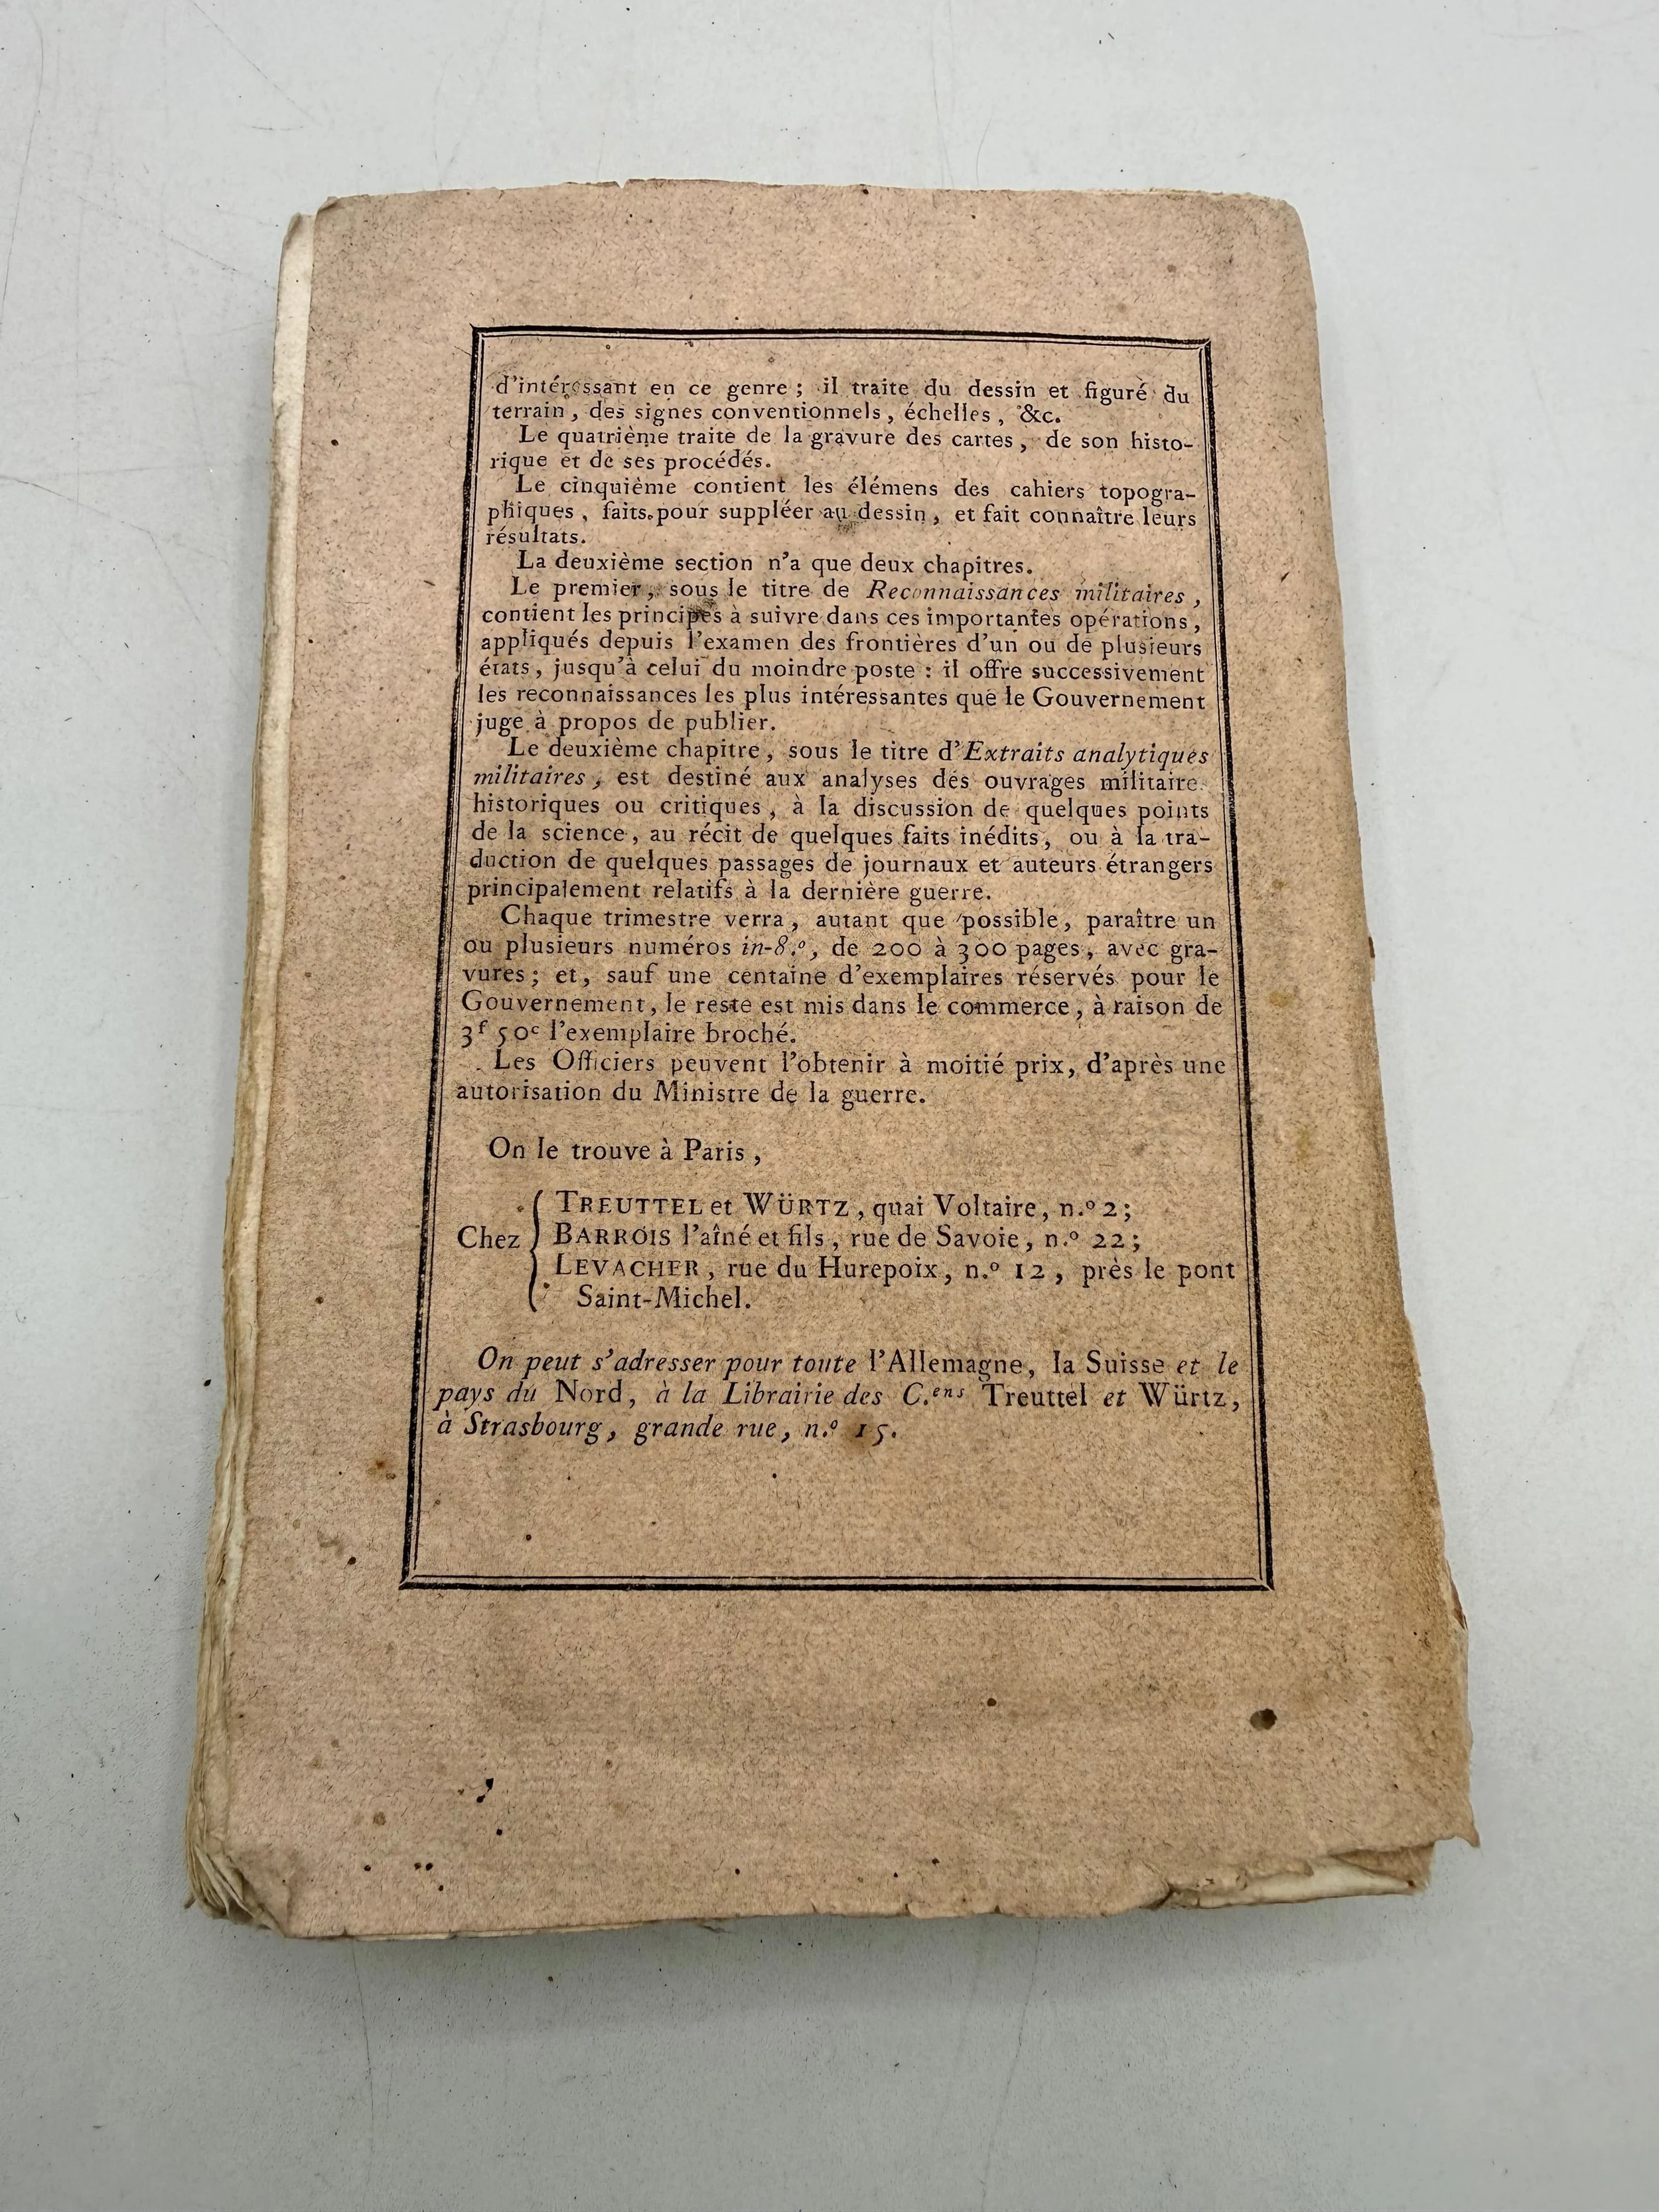 d'intéressant en ce genre ; il traite du dessin et figuré du
terrain, des signes conventionnels, échelles, &c.
Le quatrième traite de la gravure des cartes, de son histo-
rique et de ses procédés.
Le cinquième contient les élémens des cahiers topogra-
phiques, faits pour suppléer au dessin, et fait connaître leurs
résultats.
La deuxième section n'a que deux chapitres.
Le premier, sous le titre de Reconnaissances militaires,
contient les principes à suivre dans ces importantes opérations,
appliqués depuis l'examen des frontières d'un ou de plusieurs
états, jusqu'à celui du moindre poste : il offre successivement
les reconnaissances les plus intéressantes que le Gouvernement
juge à propos de publier.
Le deuxième chapitre, sous le titre d'Extraits analytiques
militaires, est destiné aux analyses des ouvrages militaire
historiques ou critiques, à la discussion de quelques points
de la science, au récit de quelques faits inédits, ou à la tra-
duction de quelques passages de journaux et auteurs étrangers
principalement relatifs à la dernière guerre.
Chaque trimestre verra, autant que possible, paraître un
ou plusieurs numéros in-8.º, de 200 à 300 pages, avec gra-
vures ; et, sauf une centaine d'exemplaires réservés pour le
Gouvernement, le reste est mis dans le commerce, à raison de
3ᶠ 50ᶜ l'exemplaire broché.
Les Officiers peuvent l'obtenir à moitié prix, d'après une
autorisation du Ministre de la guerre.
On le trouve à Paris,
Chez
TREUTTEL et WÜRTZ, quai Voltaire, n.º 2 ;
BARROIS l'aîné et fils, rue de Savoie, n.º 22 ;
LEVACHER, rue du Hurepoix, n.º 12, près le pont
Saint-Michel.
On peut s'adresser pour toute l'Allemagne, la Suisse et le
pays du Nord, à la Librairie des C.ᵉⁿˢ Treuttel et Würtz,
à Strasbourg, grande rue, n.º 15.